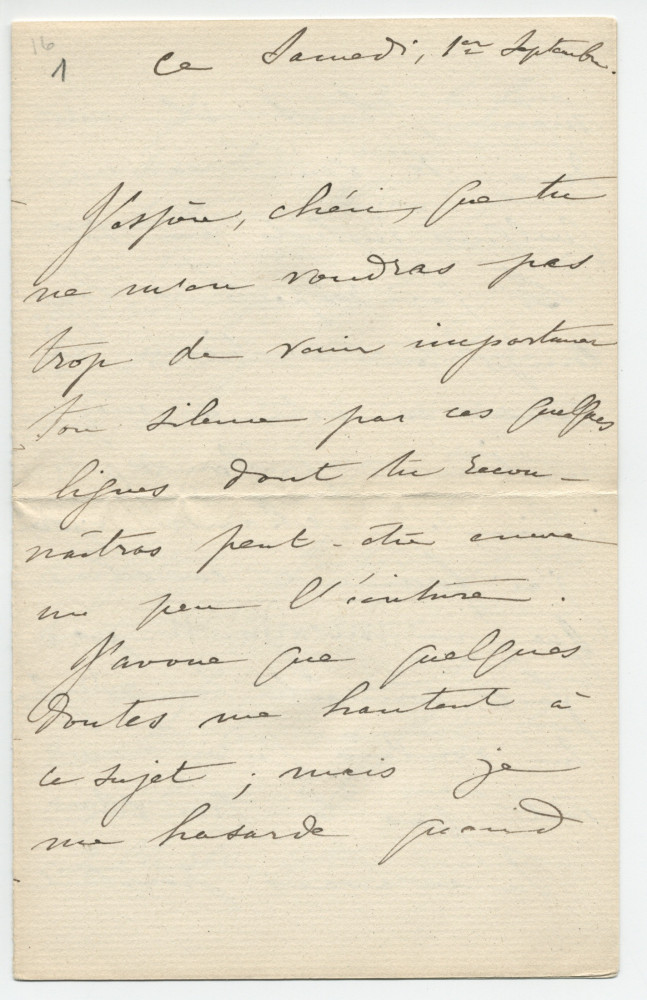 16
1
ce Samedi, 1er Septembre.
J'espère, chéri, que tu
ne m'en voudras pas
trop de venir importuner
ton silence par ces quelques
lignes dont tu recon-
naîtras peut-être encore
un peu l'écriture.
J'avoue que quelques
doutes me hantent à
ce sujet ; mais je
me hasarde quand